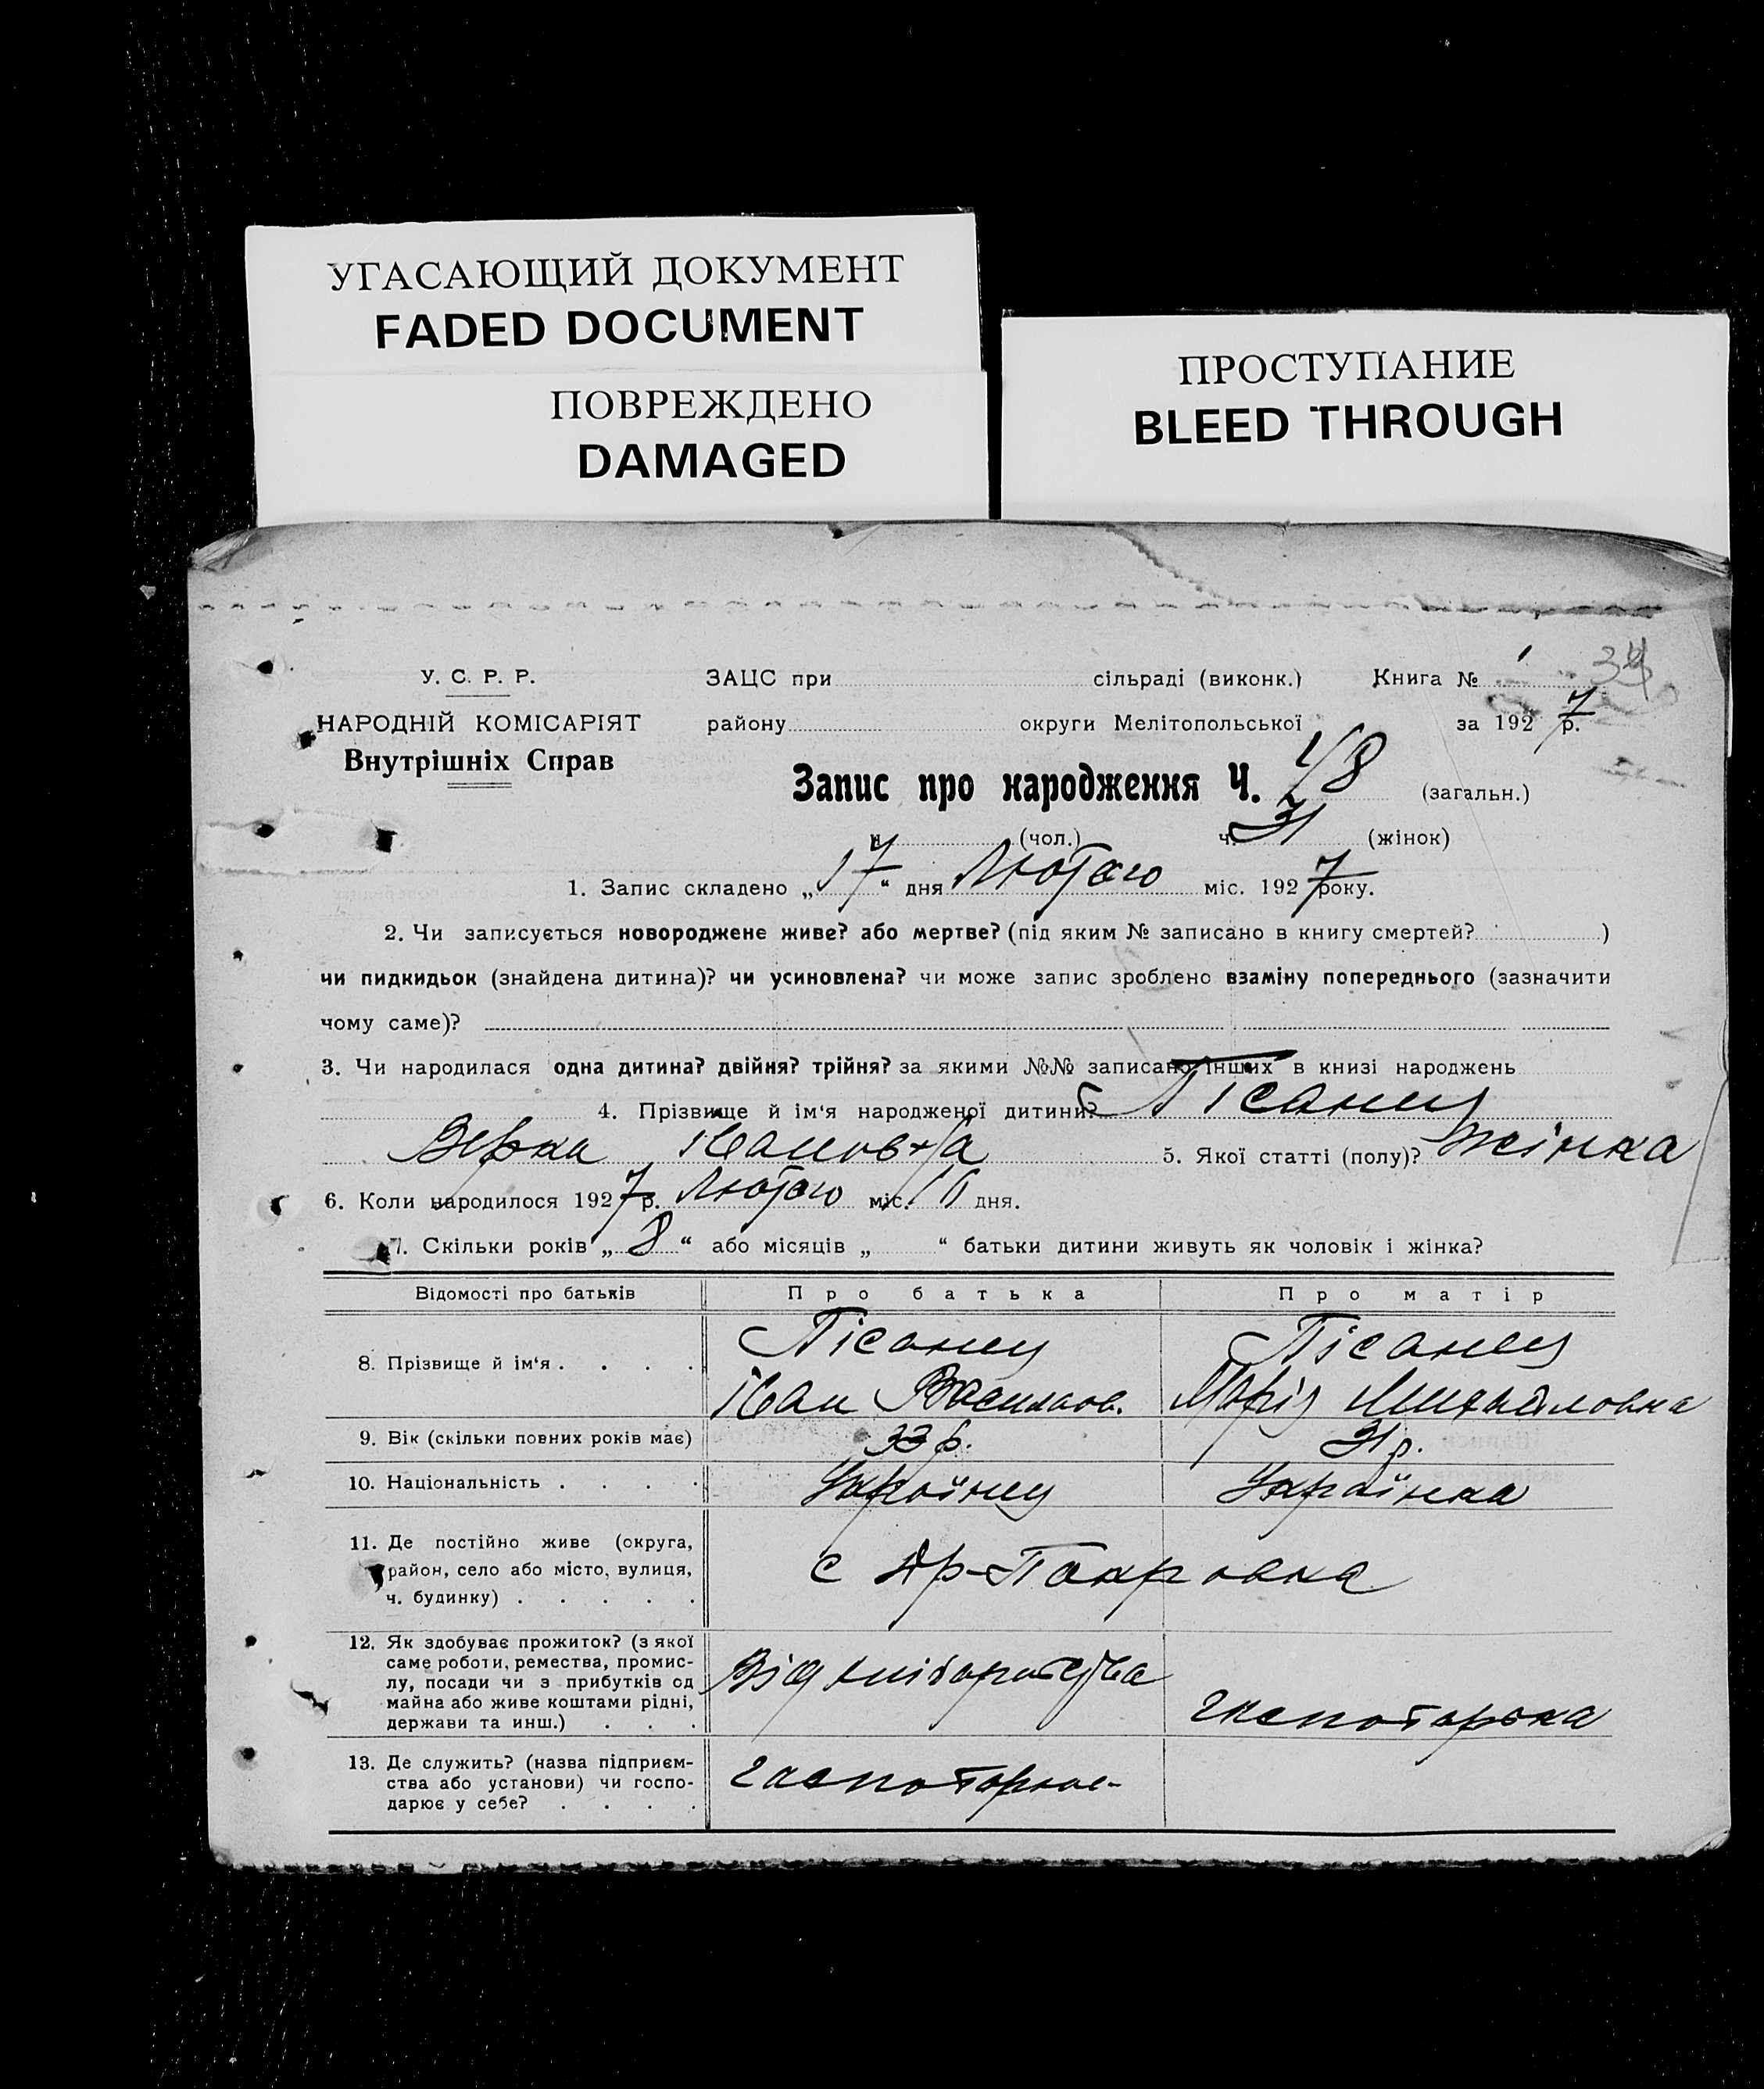 УГАСАЮЩИЙ ДОКУМЕНТ
FADED DOCUMENT
ПОВРЕЖДЕНО
DAMAGED
ПРОСТУПАНИЕ
BLEED THROUGH
У. С. Р. Р. ЗАЦС при сільраді (виконк.) Книга №
НАРОДНІЙ КОМІСАРІЯТ району округи Мелітопольської за 1927 р.
Внутрішніх Справ
Запис про народження Ч. (загальн.)
ч. (чол.) ч. 31 (жінок)
1. Запис складено „17“ дня Лютого міс. 1927 року.
2. Чи записується новороджене живе? або мертве? (під яким № записано в книгу смертей? )
чи пидкидьок (знайдена дитина)? чи усиновлена? чи може запис зроблено взаміну попереднього (зазначити
чому саме)?
3. Чи народилася одна дитина? двійня? трійня? за якими №№ записано інших в книзі народжень
4. Прізвище й ім‘я народженої дитини? Пісанец
Верка Івановна 5. Якої статті (полу)? жінка
6. Коли народилося 1927 р. Лютого міс. дня.
7. Скільки років „8“ або місяців „ “ батьки дитини живуть як чоловік і жінка?
Відомості про батьків Про батька Про матір
8. Прізвище й ім‘я . . . . Пісанец Пісанец
Іван Васильов. Марія Михайловна
9. Вік (скільки повних років має) 33 р. 31 р.
10. Національність . . . . Українец Українка
11. Де постійно живе (округа,
район, село або місто, вулиця,
ч. будинку) . . . . .
с
12. Як здобуває прожиток? (з якої
саме роботи, ремества, промис-
лу, посади чи з прибутків од
майна або живе коштами рідні,
держави та инш.) . . .
Від
13. Де служить? (назва підприєм-
ства або установи) чи госпо-
дарює у себе? . . . .